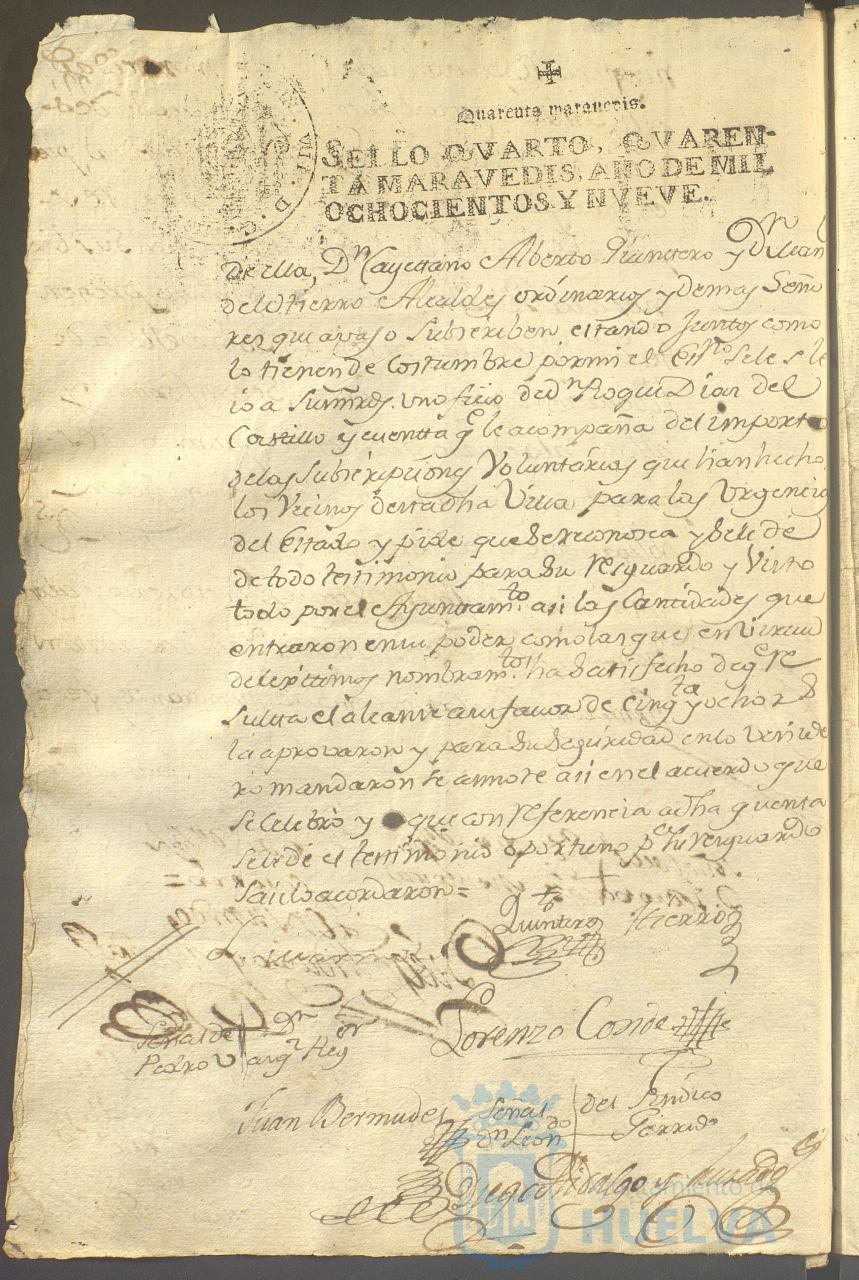 Quarenta maravedis.
SELLO QVARTO, QVAREN-
TA MARAVEDIS, AÑO DE MIL
OCHOCIENTOS Y NVEVE.
de ella, Dn Cayettano Alberto Quinttero y Dn Juan
del Hierro Alcaldes ordinarios y demas Seño
res que avajo Subscriben estando Juntos como
lo tienen de Costumbre por mi el Essno Se les le
io a Sus mrds. un oficio de dn Roque Dian del
Castillo y cuentta qe le acompaña del importe
de las Subscripciones Voluntarias que han hecho
los Vecinos de esta dha Villa para las Urgencias
del Estado y pide que Se reconosca y Se le dé
de todo testimonio para Su resguardo y Visto
todo por el Ayuntamto. asi las Cantidades que
entraron en su poder como las que en Virtud
de lexitimos nombramtos. ha Satisfecho de qe re
Sulta el alcance a su favor de Cinqta y ocho rs
la aprovaron y para Su Seguridad en lo venide
ro mandaron Se annote asi en el acuerdo que
Se Celebró y que con referencia a dha quenta
Se le dé el testimonio oportuno pa Su resguardo
i asi lo acordaron=
Quintero Hierro
Lorenzo Conde
Señal de Dn
Pedro Rexor
Juan Bermudez
Señal del Sindico
dn Leondo Garrido
Diego Hidalgo y
Ayuntamiento de
HUELVA